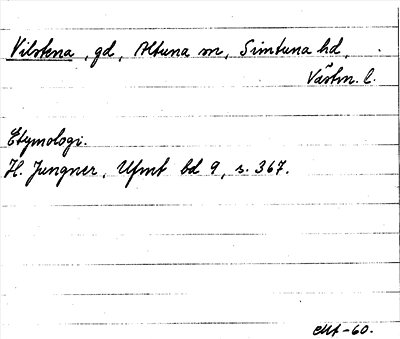 Vilstena, gd, Altuna sn, Simtuna hd,
Västm. l.
Etymologi.
H. Jungner, Ufmt bd 9, s. 367.
-60.